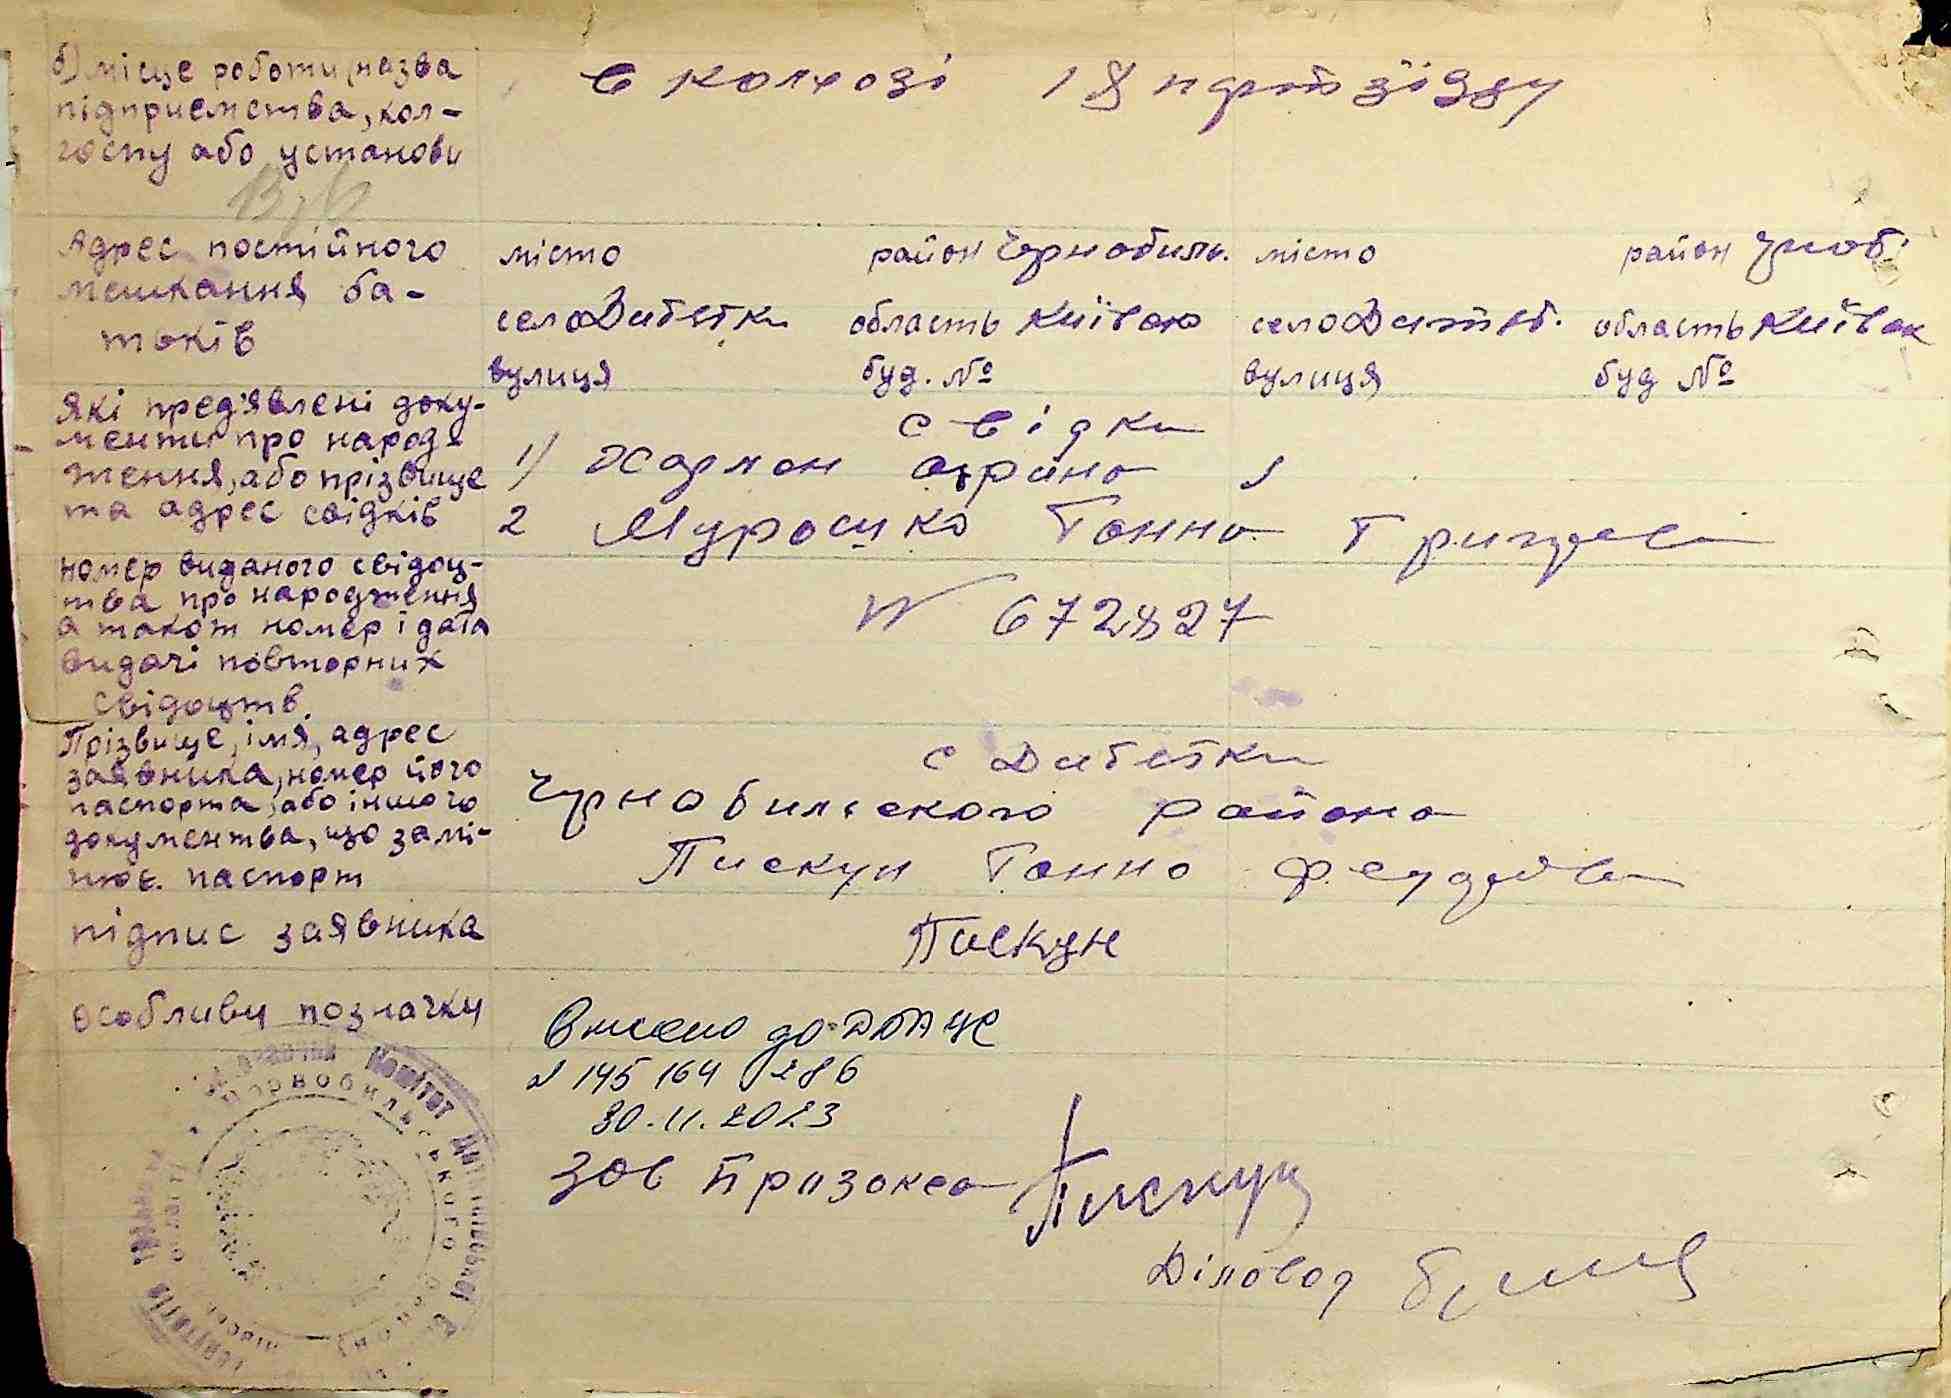 б) місце роботи, назва
підприємства, кол-
госпу або установи
в колхозі 18 парт зїзду
Адрес постійного
мешкання ба-
тьків
місто район Чернобиль. місто район Чноб.
село Дитятки область Київск село Дитят. область Київск
вулиця буд. № вулиця буд №
Які предʼявлені доку-
менти про народ-
ження, або прізвище
та адрес свідків
свідки
1) Харлан
2 Мурошка Ганна Григорів
номер виданого свідоц-
тва про народження
а також номер і дата
видачі повторних
свідоцтв.
N 672827
Прізвище, імя, адрес
заявника, номер його
паспорта, або іншого
документва, що замі-
нює паспорт
с Дитятки
Чернобильского района
Пискун Ганна
підпис заявника
Пискун
Особливи позначки
Внесено до ДРАЦС
145 164 286
30.11.2023
Зав Пискун
Діловод
Комітет
Чорнобильського району